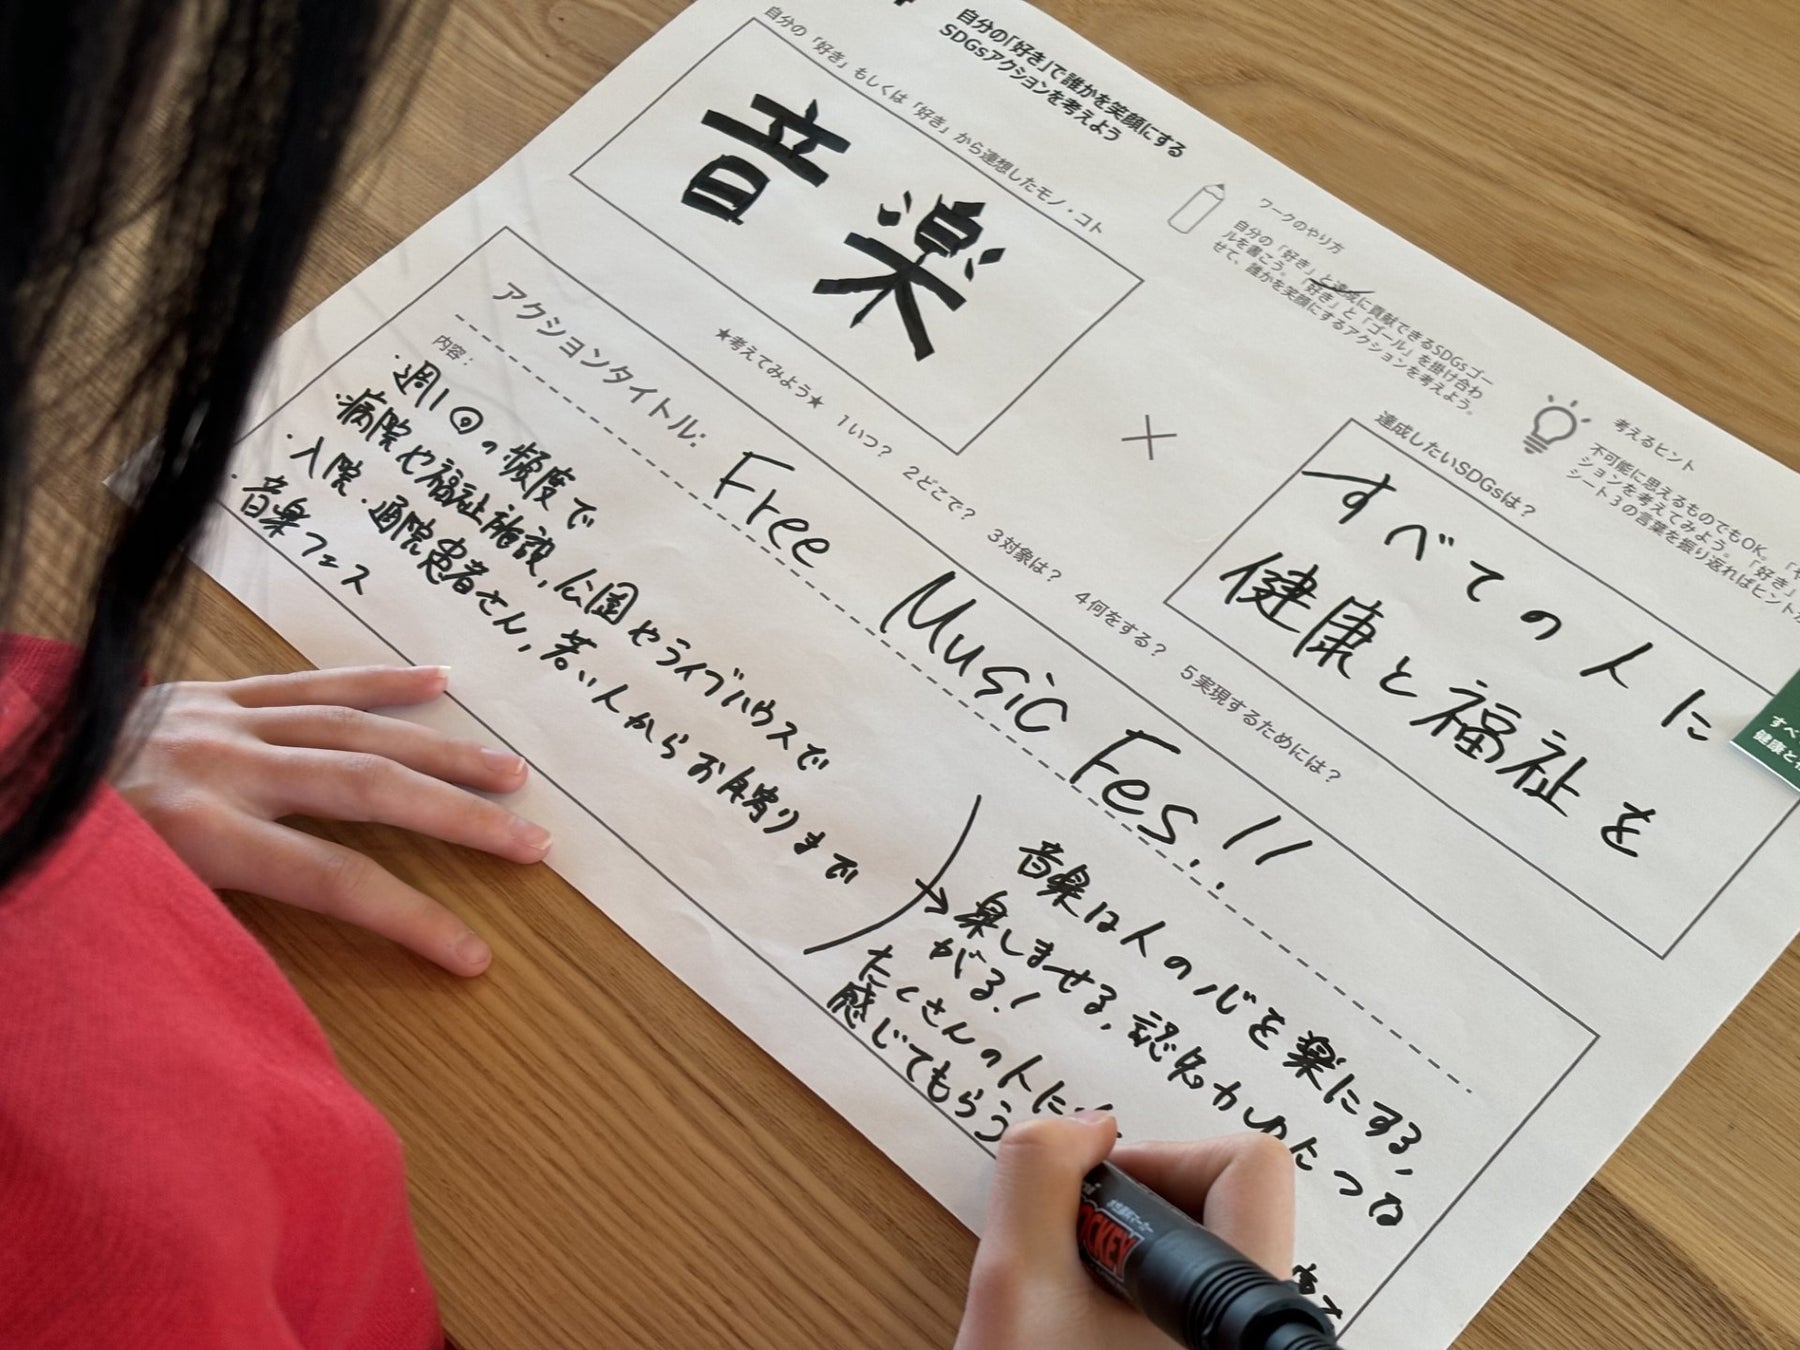 自分の「好き」で誰かを笑顔にする
SDGsアクションを考えよう
自分の「好き」もしくは「好き」から連想したモノ・コト
音楽
ワークのやり方
自分の「好き」と達成に貢献できるSDGsゴー
ルを書こう。「好き」と「ゴール」を掛け合わ
せて、誰かを笑顔にするアクションを考えよう。
考えるヒント
不可能に思えるものでもOK。
ションを考えてみよう。「好き」
シート3の言葉を振り返ればヒントが
×
達成したいSDGsは?
すべての人に
健康と福祉を
すべ
健康と
★考えてみよう★ 1いつ? 2どこで? 3対象は? 4何をする? 5実現するためには?
アクションタイトル: Free Music Fes.!!
内容:
・週1回の頻度で
・病院や福祉施設,公園やライブハウスで
・入院・通院患者さん,若い人からお年寄りまで
・音楽フェス
音楽は人の心を楽にする,
→楽しませる,
がる!
たくさんの人に
感じてもらう